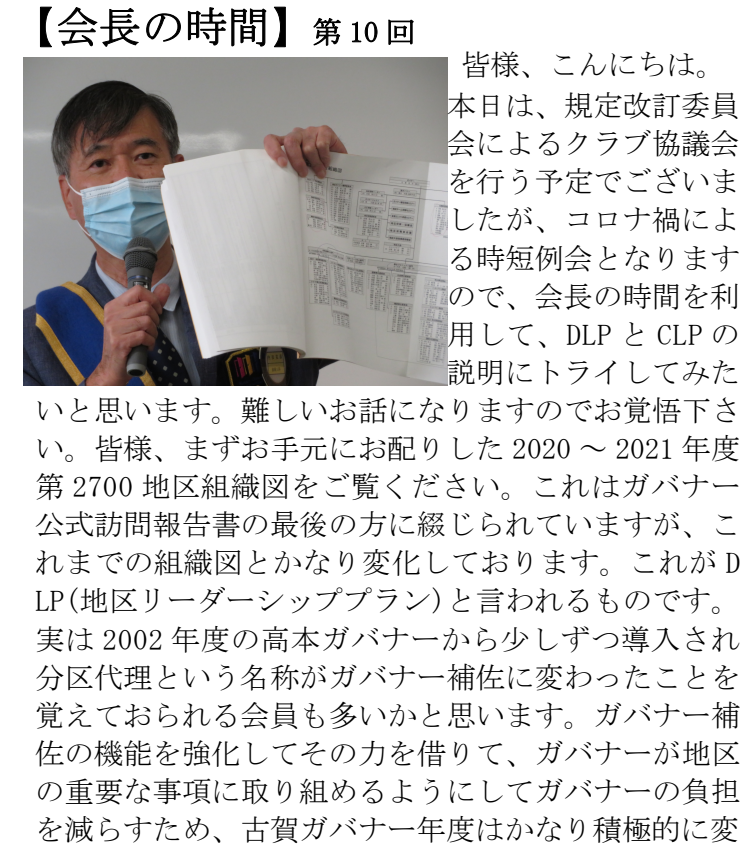 【会長の時間】第10回
皆様、こんにちは。
本日は、規定改訂委員
会によるクラブ協議会
を行う予定でございま
したが、コロナ禍によ
る時短例会となります
ので、会長の時間を利
用して、DLPとCLPの
説明にトライしてみた
いと思います。難しいお話になりますのでお覚悟下さ
い。皆様、まずお手元にお配りした2020～2021年度
第2700地区組織図をご覧ください。これはガバナー
公式訪問報告書の最後の方に綴じられていますが、こ
れまでの組織図とかなり変化しております。これがD
LP(地区リーダーシッププラン)と言われるものです。
実は2002年度の高本ガバナーから少しずつ導入され
分区代理という名称がガバナー補佐に変わったことを
覚えておられる会員も多いかと思います。ガバナー補
佐の機能を強化してその力を借りて、ガバナーが地区
の重要な事項に取り組めるようにしてガバナーの負担
を減らすため、古賀ガバナー年度はかなり積極的に変